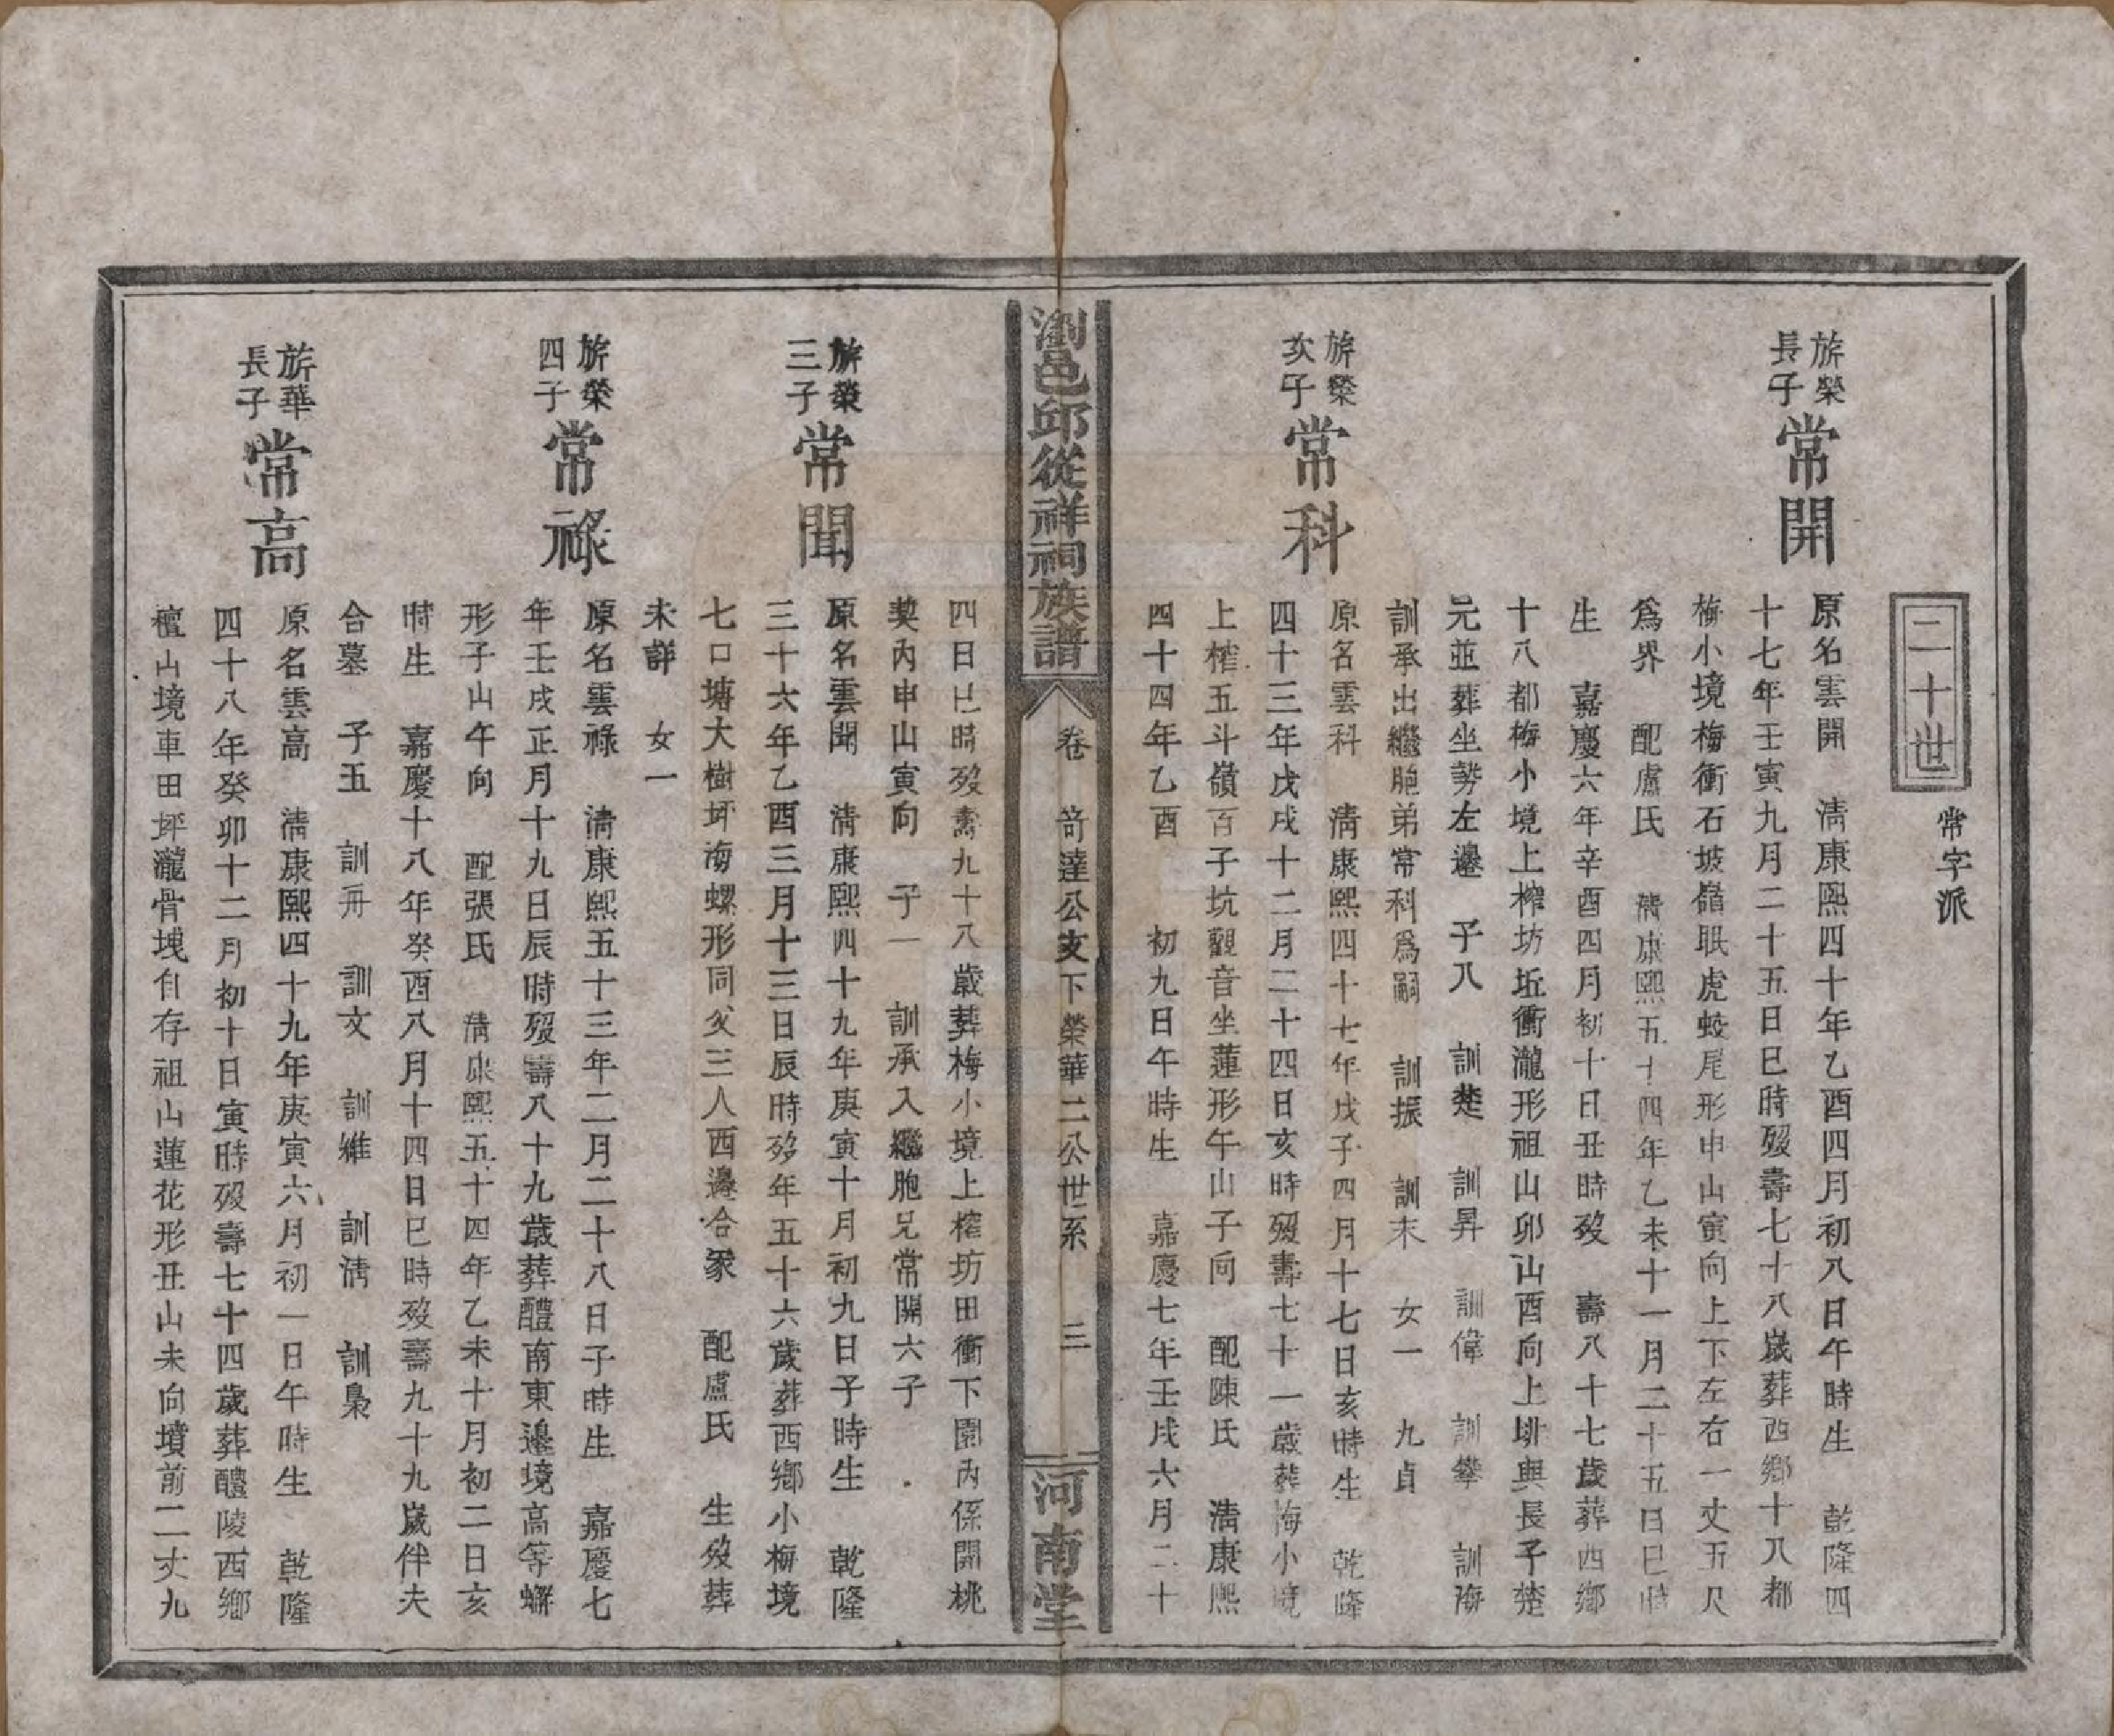 二十世
常字派
旂榮
長子
常開
原名雲開 淸康熙四十年乙酉四月初八日午時生 乾隆四
十七年壬寅九月二十五日巳時歿壽七十八歲葬西鄉十八都
梅小境梅衝石坡嵓眠虎蛟尾形申山寅向上下左右一丈五尺
爲界 配盧氏 淸康熙五十四年乙未十一月二十五日巳時
生 嘉慶六年辛酉四月初十日丑時歿 壽八十七歲葬西鄉
十八都梅小境上榨坊坵衝瀧形祖山卯山酉向上排與長子楚
元並葬坐勢左邊 子八 訓楚 訓昇 訓偉 訓攀 訓海
訓承出繼胞弟常科爲嗣 訓振 訓末 女一 九貞
旂榮
次子
常科
原名雲科 淸康熙四十七年戊子四月十七日亥時生 乾隆
四十三年戊戌十二月二十四日亥時歿壽七十一歲葬梅小境
上榨五斗嶺百子坑觀音坐蓮形午山子向 配陳氏 淸康熙
四十四年乙酉 初九日午時生 嘉慶七年壬戌六月二十
瀏邑邱從祥祠族譜
卷 苛達公支下榮華二公世系 三
河南堂
四日巳時歿壽九十八歲葬梅小境上榨坊田衝下園內係開桃
契內申山寅向 子一 訓承入繼胞兄常開六子
旂榮
三子
常聞
原名雲聞 淸康熙四十九年庚寅十月初九日子時生 乾隆
三十六年乙酉三月十三日辰時歿年五十六歲葬西鄉小梅境
七口塘大樹坪海螺形同父三人西邊合冢 配盧氏 生歿葬
未詳 女一
旂榮
四子
常祿
原名雲祿 淸康熙五十三年二月二十八日子時生 嘉慶七
年壬戌正月十九日辰時歿壽八十九歲葬醴南東邊境高等蠏
形子山午向 配張氏 淸康熙五十四年乙未十月初二日亥
時生 嘉慶十八年癸酉八月十四日巳時歿壽九十九歲伴夫
合墓 子五 訓冊 訓文 訓維 訓淸 訓梟
旂華
長子
常高
原名雲高 淸康熙四十九年庚寅六月初一日午時生 乾隆
四十八年癸卯十二月初十日寅時歿壽七十四歲葬醴陵西鄉
檀山境車田坪瀧骨塊自存祖山蓮花形丑山未向墳前二丈九